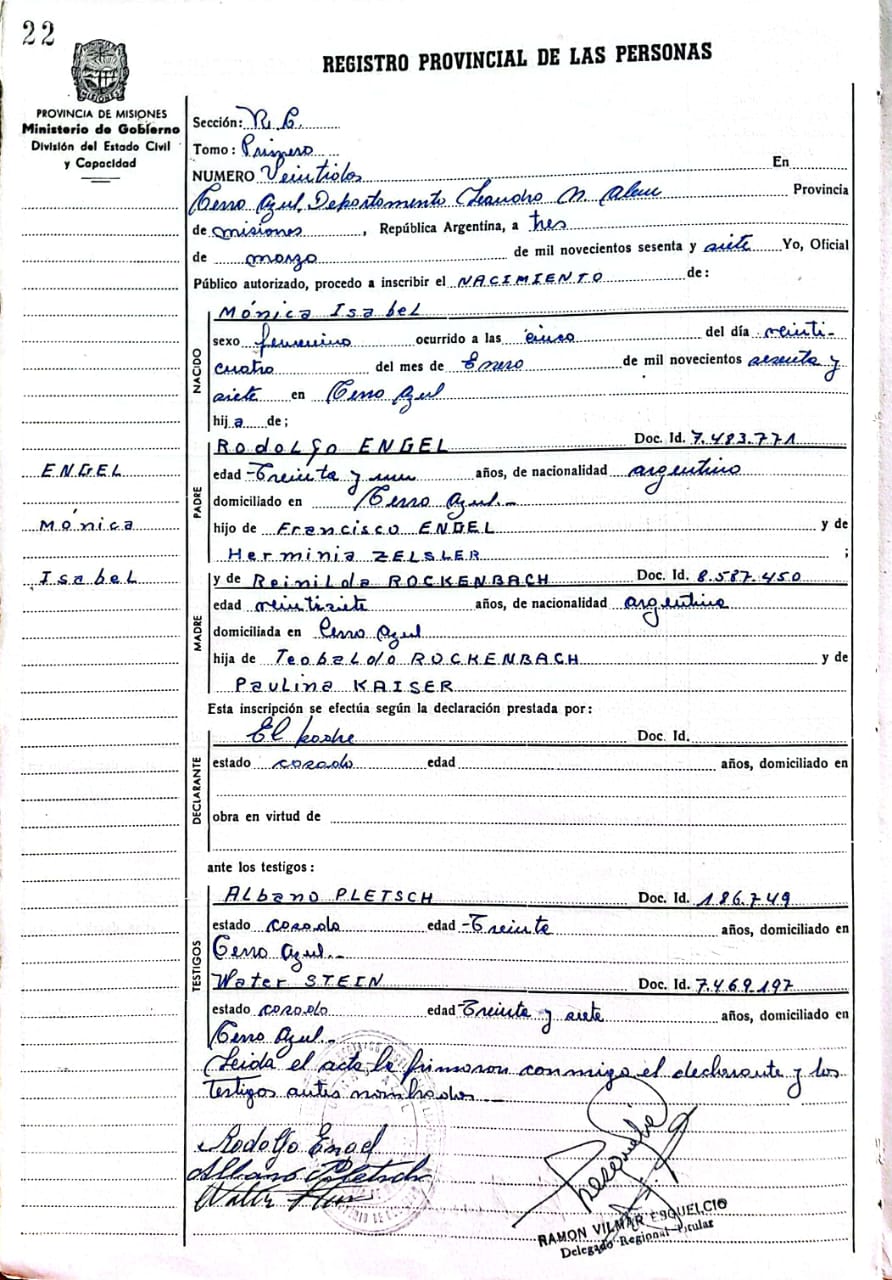 22
REGISTRO PROVINCIAL DE LAS PERSONAS
PROVINCIA DE MISIONES
Ministerio de Gobierno
División del Estado Civil
y Capacidad
Sección: N. C.
Tomo: Primero
NUMERO Veintidos En
Cerro Azul, Departamento Leandro N. Alem Provincia
de misiones, República Argentina, a tres
de marzo de mil novecientos sesenta y siete Yo, Oficial
Público autorizado, procedo a inscribir el NACIMIENTO de:
NACIDO
Mónica Isabel
sexo femenino ocurrido a las cinco del día veinti-
cuatro del mes de Enero de mil novecientos sesenta y
siete en Cerro Azul
hija de;
PADRE
Rodolfo ENGEL Doc. Id. 7.483.771
edad Treinta y un años, de nacionalidad argentino
domiciliado en Cerro Azul.-
hijo de Francisco ENGEL y de
Herminia ZELSLER ;
ENGEL
Mónica
Isabel
MADRE
y de Reinilda ROCKENBACH Doc. Id. 8.587.450
edad veintisiete años, de nacionalidad argentina
domiciliada en Cerro Azul
hija de Teobaldo ROCKENBACH y de
Paulina KAISER
Esta inscripción se efectúa según la declaración prestada por:
DECLARANTE
El padre Doc. Id.
estado casado edad años, domiciliado en
obra en virtud de
ante los testigos:
TESTIGOS
Albano PLETSCH Doc. Id. 186.749
estado casado edad Treinta años, domiciliado en
Cerro Azul.-
Water STEIN Doc. Id. 7.469.197
estado casado edad Treinta y siete años, domiciliado en
Cerro Azul.-
Leida el acta la firmaron conmigo el declarante y los
Testigos antes nombrados
Rodolfo Engel
Albano Pletsch
Walter Stein
RAMON VILMAR ESQUELCIO
Delegado Regional Titular